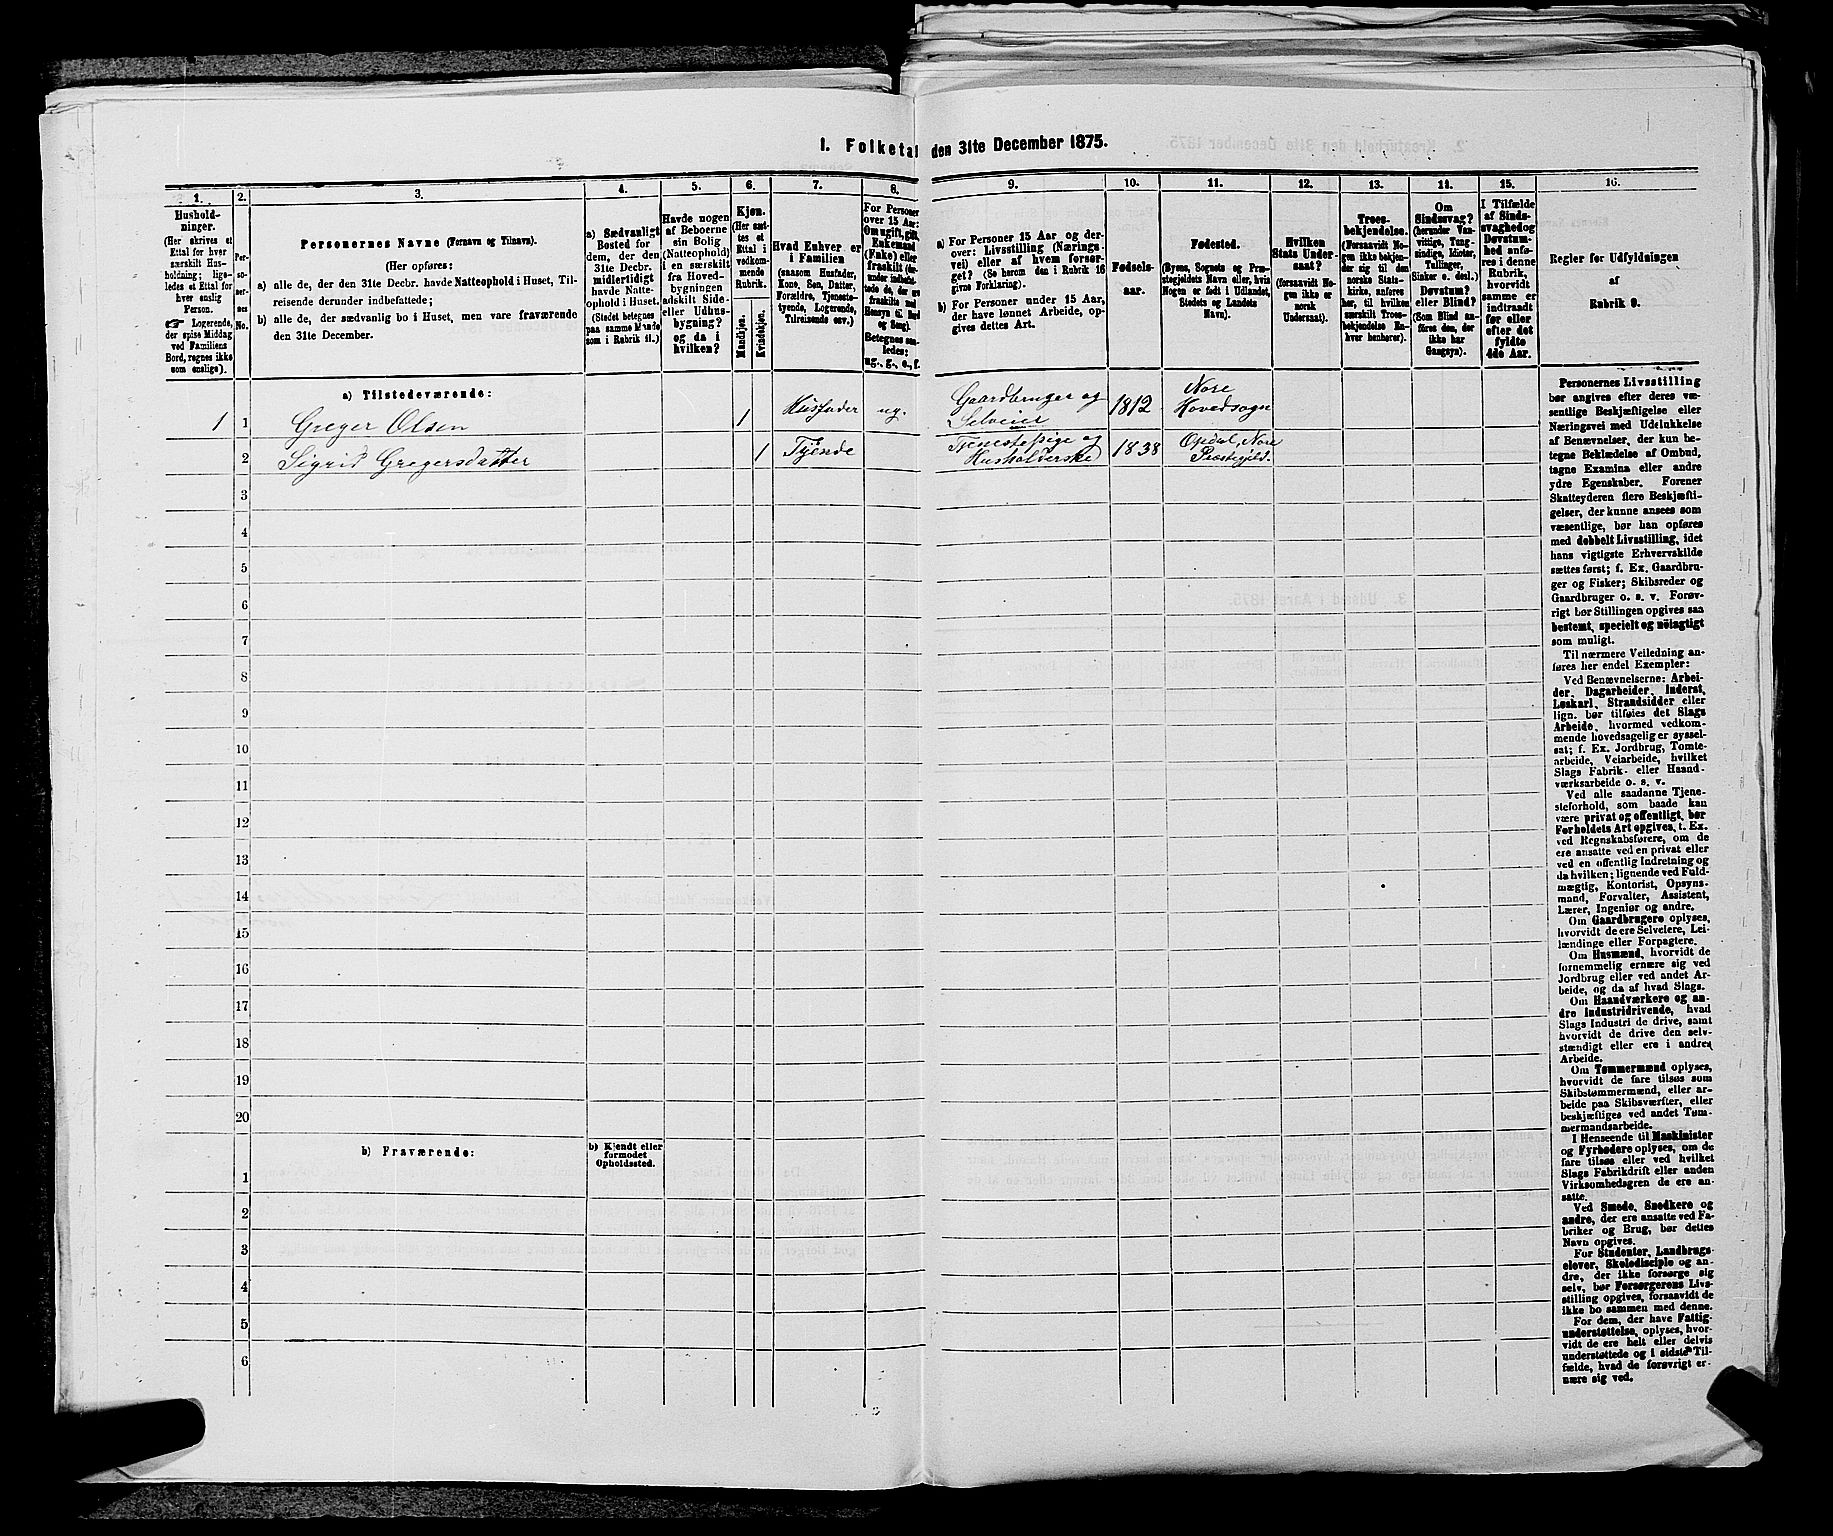 1. Folketal den 31te December 1875.
1.
2.
3.
4.
5.
6.
7.
8.
9.
10.
11.
12.
13.
14.
15.
16.
Hushold-
ninger.
(Her skrives et
Ettal for hver
særskilt Hus-
holdning; lige-
ledes et Ettal for
hver enslig
Person.
Logerende,
der spise Middag
ved Familiens
Bord, regnes ikke
som enslige).
Per-
so-
ner-
nes
No.
Personernes Navne (Fornavn og Tilnavn).
(Her opføres:
a) alle de, der den 31te Decbr. havde Natteophold i Huset, Til-
reisende derunder indbefattede;
b) alle de, der sædvanlig bo i Huset, men vare fraværende
den 31te December.
a) Sædvanligt
Bosted for
dem, der den
31te Decbr.
midlertidigt
havde Natte-
ophold i Huset.
(Stedet betegnes
paa samme Maade
som i Rubrik 11.)
Havde nogen
af Beboerne
sin Bolig
(Natteophold)
i en særskilt
fra Hoved-
bygningen
adskilt Side-
eller Udhus-
bygning?
og da i
hvilken?
Kjøn.
(Her sæt-
tes et
Ettal i
vedkom-
mende
Rubrik.
Mandkjøn.
Kvindekjøn.
Hvad Enhver er
i Familien
(saasom Husfader,
Kone, Søn, Datter,
Forældre, Tjeneste-
tyende, Logerende,
Tilreisende osv.)
For Personer
over 15 Aar:
Om ugift, gift,
Enkemand
(Enke) eller
fraskilt
Betegnes saa-
ledes:
ug., g., e., f.
a) For Personer 15 Aar og der-
over: Livsstilling (Nærings-
vei) eller af hvem forsør-
get? (Se herom den i Rubrik 16
givne Forklaring).
b) For Personer under 15 Aar,
der have lønnet Arbeide, op-
gives dettes Art.
Fødsels-
aar.
Fødested.
(Byens, Sognets og Præ-
stegjeldets Navn eller, hvis
Nogen er født i Udlandet,
Stedets og Landets
Navn).
Hvilken
Stats Under-
saat?
(forsaavidt No-
gen ikke er
norsk
Undersaat).
Troes-
bekjendelse.
(Forsaavidt No-
gen ikke bekjen-
der sig til den
norske Stats-
kirke, anføres
her, til hvilken
særskilt Troes-
bekjendelse En-
hver henhører).
Om
Sindssvag?
(herunder Van-
vittige, Tung-
sindige, Idioter,
Tullinger,
Sinker o. desl.)
Døvstum?
eller Blind?
(Som Blind an-
føres den, der
ikke har
Gangsyn).
I Tilfælde
af Sinds-
svaghed og
Døvstum-
hed anfø-
res i denne
Rubrik,
hvorvidt
samme er
indtraadt
før eller
efter det
fyldte
4de Aar.
Regler for Udfyldningen
af
Rubrik 9.
a) Tilstedeværende:
1 1 Greger Olsen 1 Husfader ug. Gaardbruger og Selveier 1812 Nore Hovedsogn
2 Sigrid Gregersdatter 1 Tyende Tjenestepige og Husholderske 1838 Opdal, Nore Præstegjeld.
3
4
5
6
7
8
9
10
11
12
13
14
15
16
17
18
19
20
b) Fraværende:
b) Kjendt eller
formodet
Opholdssted.
1
2
3
4
5
6
Personernes Livsstilling
bør angives efter deres væ-
sentlige Beskjæftigelse eller
Næringsvei med Udelukkelse
af Benævnelser, der kun be-
tegne Beklædelse af Ombud,
tagne Examina eller andre
ydre Egenskaber. Forener
Skatteyderen flere Beskjæfti-
gelser, der kunne ansees som
væsentlige, bør han opføres
med dobbelt Livsstilling, idet
hans vigtigste Erhvervskilde
sættes først; f. Ex. Gaardbru-
ger og Fisker; Skibsreder og
Gaardbruger o. s. v. Forøv-
rigt bør Stillingen opgives saa
bestemt, specielt og nøiagtigt
som muligt.
Til nærmere Veiledning an-
føres her endel Exempler:
Ved Benævnelserne: Arbei-
der, Dagarbeider, Inderst,
Løskarl, Strandsidder eller
lign. bør tilføies det Slags
Arbeide, hvormed vedkom-
mende hovedsagelig er syssel-
sat; f. Ex. Jordbrug, Tomte-
arbeide, Veiarbeide, hvilket
Slags Fabrik- eller Haand-
værksarbeide o. s. v.
Ved alle saadanne Tjene-
steforhold, som baade kan
være privat og offentligt, bør
Forholdets Art opgives, t. Ex.
ved Regnskabsførere, om de
ere ansatte ved en privat eller
ved en offentlig Indretning og
da hvilken; lignende ved Fuld-
mægtig, Kontorist, Opsyns-
mand, Forvalter, Assistent,
Lærer, Ingeniør og andre.
Om Gaardbrugere oplyses,
hvorvidt de ere Selveiere, Lei-
lændinge eller Forpagtere.
Om Husmænd, hvorvidt de
fornemmelig ernære sig ved
Jordbrug eller ved andet Ar-
beide, og da af hvad Slags.
Om Haandværkere og an-
dre Industridrivende, hvad
Slags Industri de drive, samt
hvorvidt de drive den selv-
stændigt eller ere i andres
Arbeide.
Om Tømmermænd oplyses,
hvorvidt de fare tilsøs som
Skibstømmermænd, eller ar-
beide paa Skibsværfter, eller
beskjæftiges ved andet Tøm-
mermandsarbeide.
I Henseende til Maskinister
og Fyrbødere oplyses, om de
fare tilsøs eller ved hvilket
Slags Fabrikdrift eller anden
Virksomhedsgren de ere an-
satte.
Ved Smede, Snedkere og
andre, der ere ansatte ved Fa-
briker og Brug, bør dettes
Navn opgives.
For Studenter, Landbrugs-
elever, Skoledisciple og an-
dre, der ikke forsørge sig
selv, bør Forsørgerens Livs-
stilling opgives, forsaavidt de
ikke bo sammen med denne.
For dem, der have Fattig-
understøttelse, oplyses, hvor-
vidt de ere helt eller delvis
understøttede og i sidste Til-
fælde, hvad de forøvrigt er-
nære sig ved.